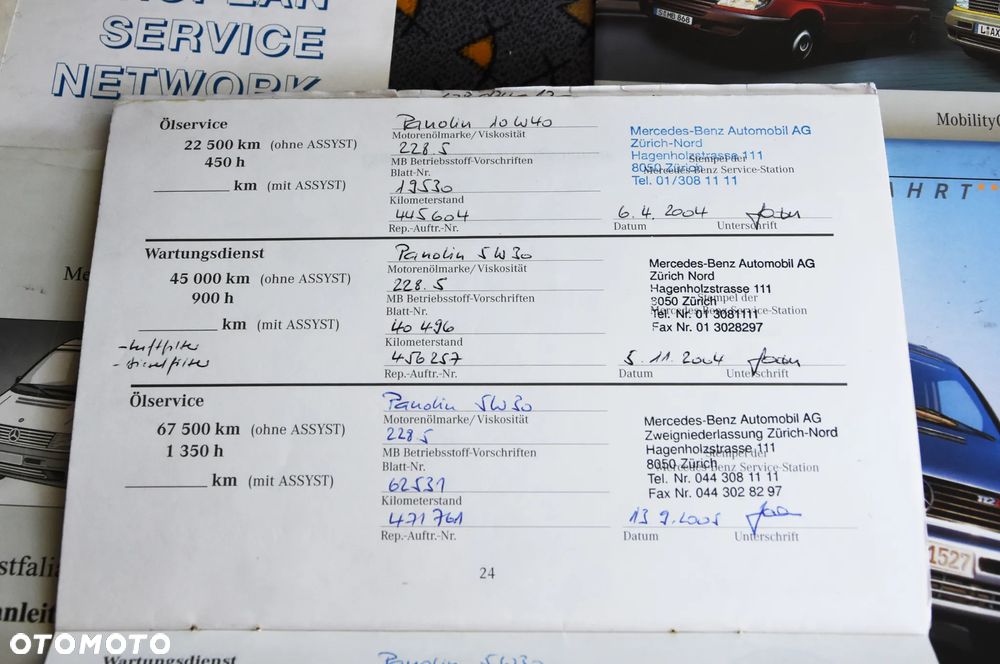 SERVICE
NETWORK
S MB 868
MobilityG
AHRT
Ölservice
22 500 km (ohne ASSYST)
450 h
km (mit ASSYST)
Panolin 10W40
Motorenölmarke/Viskosität
228.5
MB Betriebsstoff-Vorschriften
Blatt-Nr.
19530
Kilometerstand
445604
Rep.-Auftr.-Nr.
Mercedes-Benz Automobil AG
Zürich-Nord
Hagenholzstrasse 111
8050 Zürich
Tel. 01/308 11 11
Stempel der
Mercedes-Benz Service-Station
6.4.2004
Datum Unterschrift
Wartungsdienst
45 000 km (ohne ASSYST)
900 h
km (mit ASSYST)
-Luftfilter
-Dieselfilter
Panolin 5W30
Motorenölmarke/Viskosität
228.5
MB Betriebsstoff-Vorschriften
Blatt-Nr.
40496
Kilometerstand
456257
Rep.-Auftr.-Nr.
Mercedes-Benz Automobil AG
Zürich Nord
Hagenholzstrasse 111
8050 Zürich
Tel. Nr. 01 3081111
Fax Nr. 01 3028297
Stempel der
Mercedes-Benz Service-Station
5.11.2004
Datum Unterschrift
Ölservice
67 500 km (ohne ASSYST)
1 350 h
km (mit ASSYST)
Panolin 5W30
Motorenölmarke/Viskosität
228.5
MB Betriebsstoff-Vorschriften
Blatt-Nr.
62531
Kilometerstand
471761
Rep.-Auftr.-Nr.
Mercedes-Benz Automobil AG
Zweigniederlassung Zürich-Nord
Hagenholzstrasse 111
8050 Zürich
Tel. Nr. 044 308 11 11
Fax Nr. 044 302 82 97
Stempel der
Mercedes-Benz Service-Station
13 9.2005
Datum Unterschrift
24
1527
stfalia
anleit
OTOMOTO
Wartungsdienst
Panolin 5W30